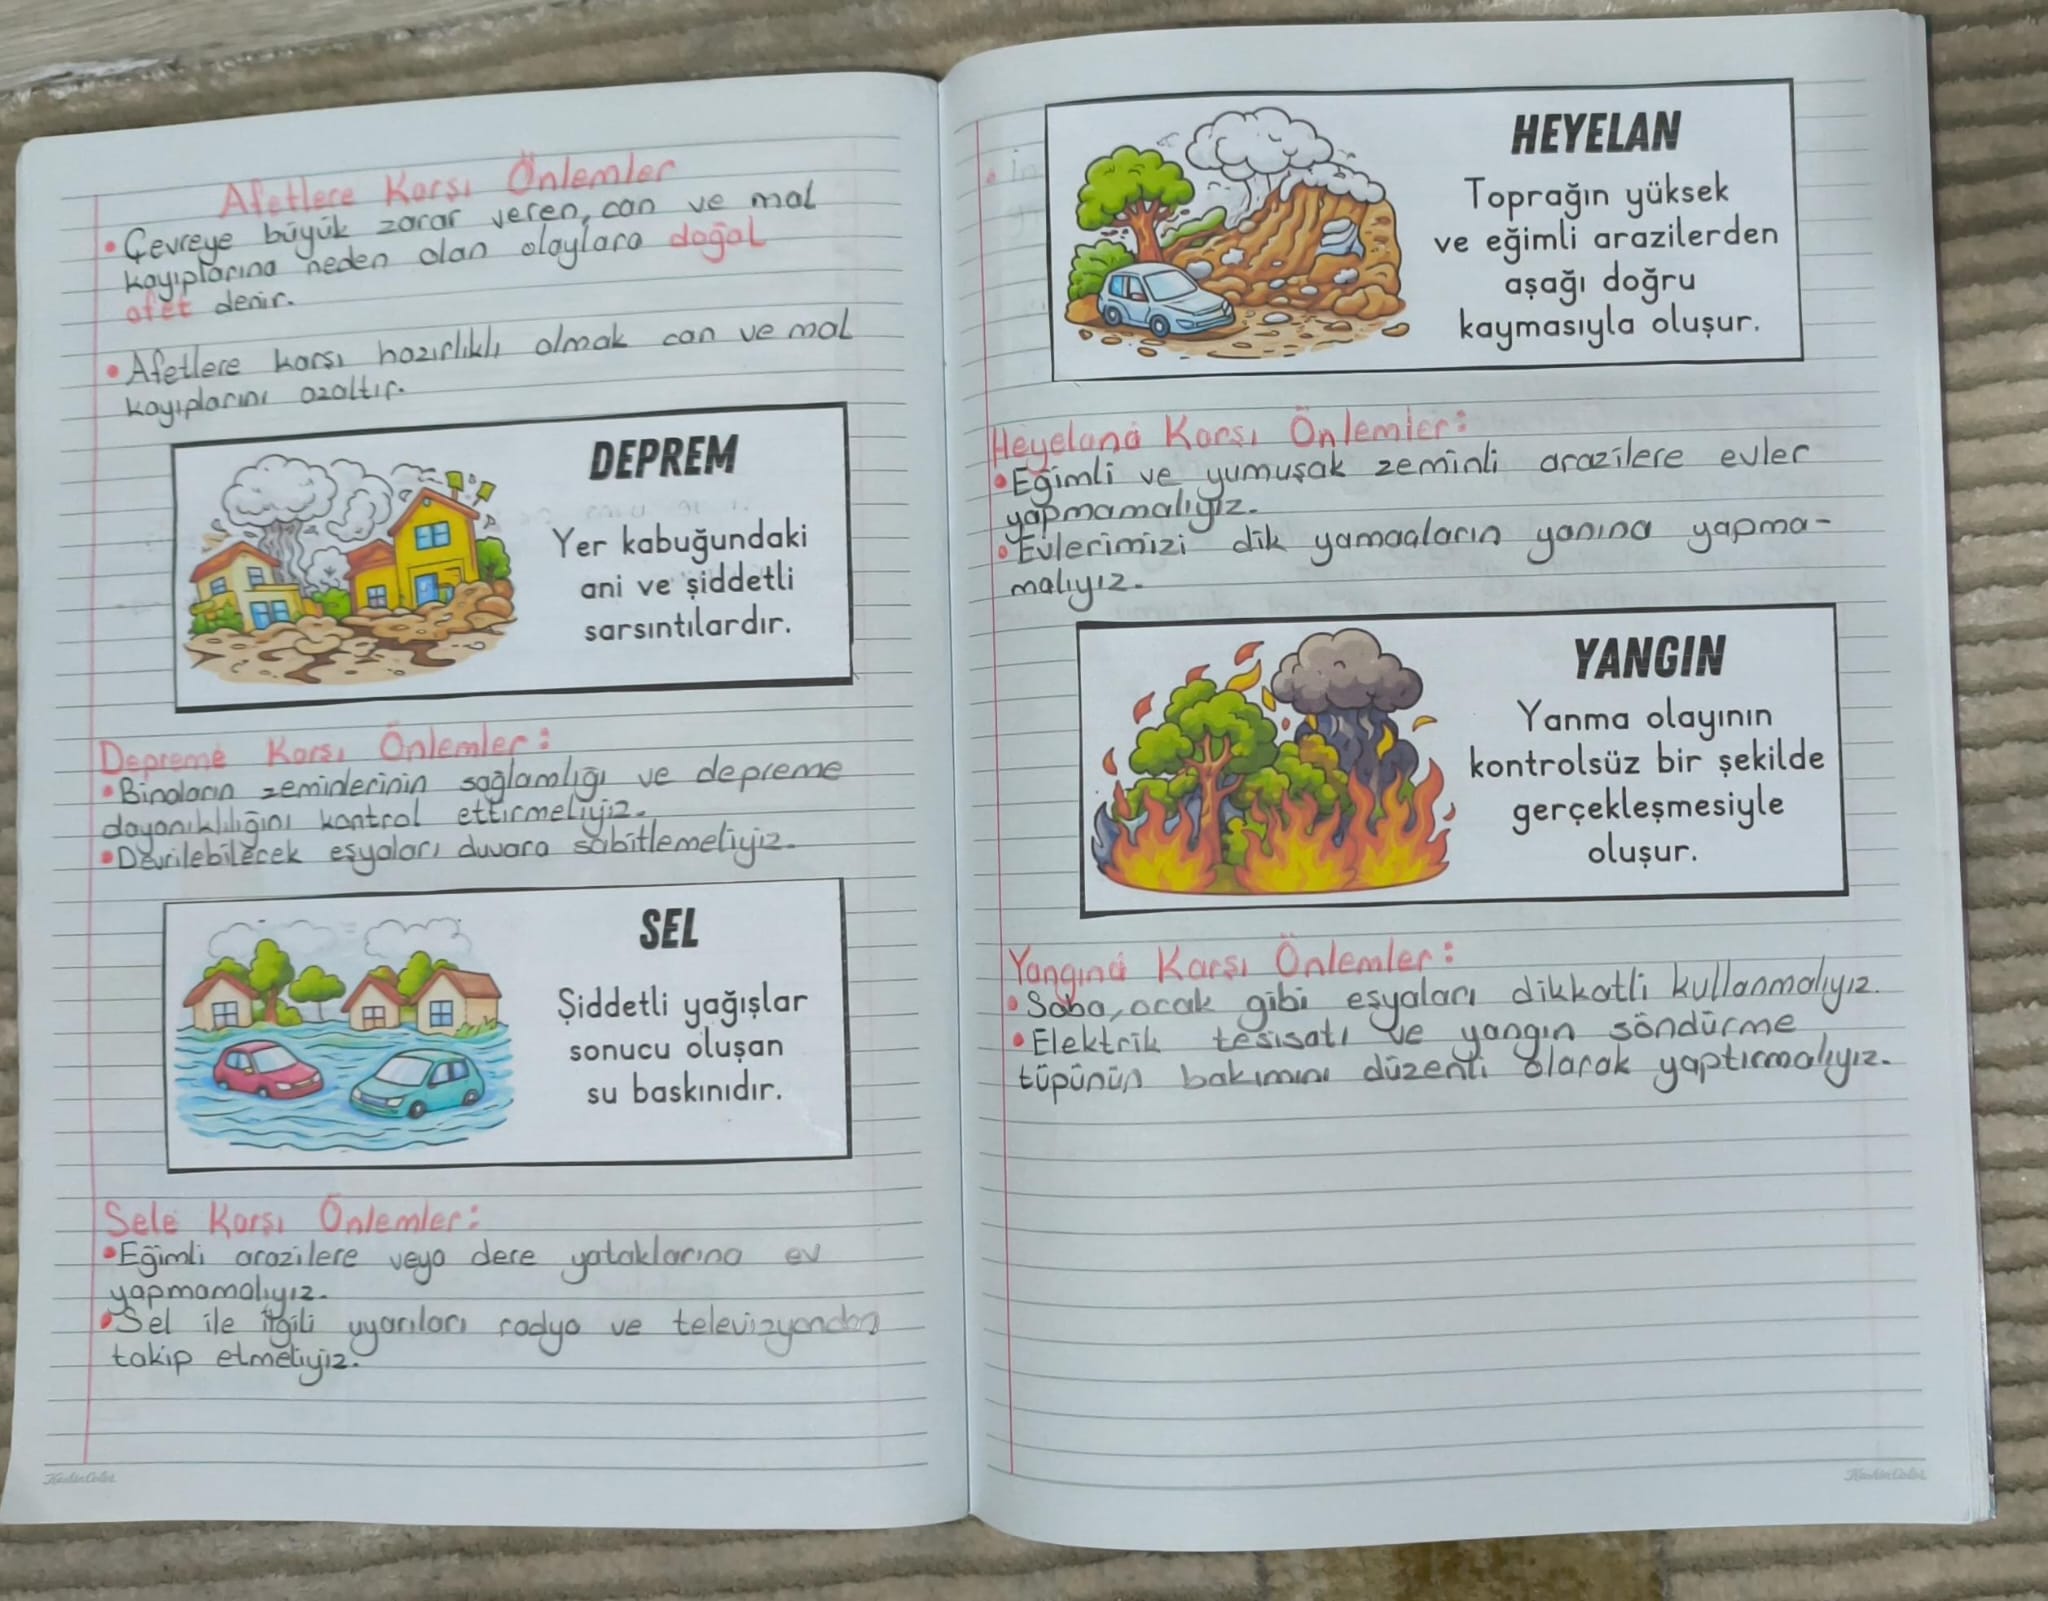 Afetlere Karşı Önlemler
• Çevreye büyük zarar veren, can ve mal
kayıplarına neden olan olaylara doğal
afet denir.
• Afetlere karşı hazırlıklı olmak can ve mal
kayıplarını azaltır.
DEPREM
Yer kabuğundaki
ani ve şiddetli
sarsıntılardır.
Depreme Karşı Önlemler:
• Binaların zeminlerinin sağlamlığı ve depreme
dayanıklılığını kontrol ettirmeliyiz.
• Devrilebilecek eşyaları duvara sabitlemeliyiz.
SEL
Şiddetli yağışlar
sonucu oluşan
su baskınıdır.
Sele Karşı Önlemler:
• Eğimli arazilere veya dere yataklarına ev
yapmamalıyız.
• Sel ile ilgili uyarıları radyo ve televizyondan
takip etmeliyiz.
KeskinColor
HEYELAN
Toprağın yüksek
ve eğimli arazilerden
aşağı doğru
kaymasıyla oluşur.
Heyelana Karşı Önlemler:
• Eğimli ve yumuşak zeminli arazilere evler
yapmamalıyız.
• Evlerimizi dik yamaaların yanına yapma-
malıyız.
YANGIN
Yanma olayının
kontrolsüz bir şekilde
gerçekleşmesiyle
oluşur.
Yangına Karşı Önlemler:
• Soba, ocak gibi eşyaları dikkatli kullanmalıyız.
• Elektrik tesisatı ve yangın söndürme
tüpünün bakımını düzenli olarak yaptırmalıyız.
KeskinColor